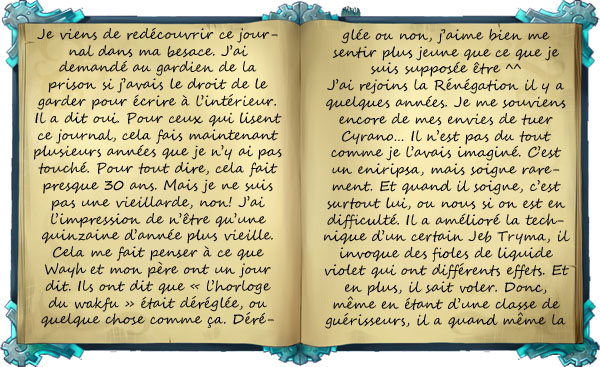 Je viens de redécouvrir ce jour-
nal dans ma besace. J'ai
demandé au gardien de la
prison si j'avais le droit de le
garder pour écrire à l'intérieur.
Il a dit oui. Pour ceux qui lisent
ce journal, cela fais maintenant
plusieurs années que je n'y ai pas
touché. Pour tout dire, cela fait
presque 30 ans. Mais je ne suis
pas une vieillarde, non! J'ai
l'impression de n'être qu'une
quinzaine d'année plus vieille.
Cela me fait penser à ce que
Wayh et mon père ont un jour
dit. Ils ont dit que « l'horloge
du wakfu » était déréglée, ou
quelque chose comme ça. Déré-
glée ou non, j'aime bien me
sentir plus jeune que ce que je
suis supposée être ^^
J'ai rejoins la Rénégation il y a
quelques années. Je me souviens
encore de mes envies de tuer
Cyrano... Il n'est pas du tout
comme je l'avais imaginé. C'est
un eniripsa, mais soigne rare-
ment. Et quand il soigne, c'est
surtout lui, ou nous si on est en
difficulté. Il a amélioré la tech-
nique d'un certain Jeb Tryma, il
invoque des fioles de liquide
violet qui ont différents effets. Et
en plus, il sait voler. Donc,
même en étant d'une classe de
guérisseurs, il a quand même la